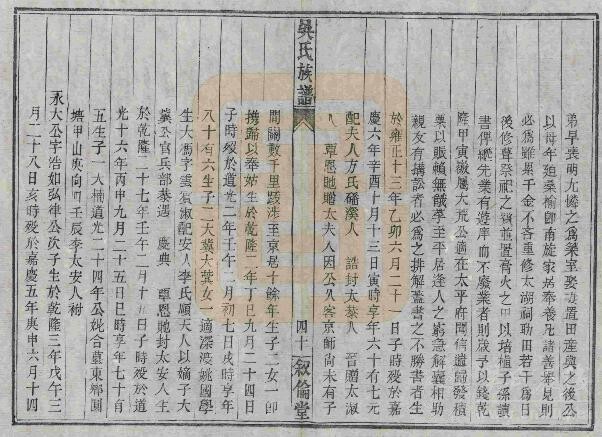 弟早喪明尤憐之為築室娶妻置田產與之後公
以母年廻桑榆卽南旋家居奉養凡諸善舉見則
必為雖累千金不吝重修太湖祠助田若干為日
後修葺祭祀之資並置膏火之田以培植子孫讀
書俾紹先業有遊庠而不廢業者則歲予以錢乾
隆甲寅徽屬大荒公適在太平府聞信遣歸發積
粟以賑賴無餓莩至平居逢人之窮急解囊相助
親友有搆訟者必為之排解蓋書之不勝書者生
於雍正十三年乙卯六月二十一日子時歿於嘉
慶六年辛酉十月十三日寅時享年六十有七元
配夫人方氏磻溪人 誥封太恭人 晉贈太淑
人 覃恩貤贈太夫人因公久客京師尚未有子
吳氏族譜
四十
敘倫堂
間關數千里跋涉至京居十餘年生子二女一卽
携歸以奉姑生於乾隆二年丁巳九月二十四日
子時歿於道光二年壬午二月初七日戌時享年
八十有六生子二大冀大葉女一適深渡姚國學
生大馮字雲 淑配安人李氏順天人以嫡子大
冀公官兵部恭遇 慶典 覃恩貤封太安人生
於乾隆二十七年壬午二月十 日子時歿於道
光十六年丙申九月二十五日巳時享年七十有
五生子一大楠道光二十四年公統合墓東鄉園
坤甲山庚向 壬辰李太安人祔
永大公字浩如弘律公次子生於乾隆三年戊午三
月二十八日亥時歿於嘉慶五年庚申六月十四